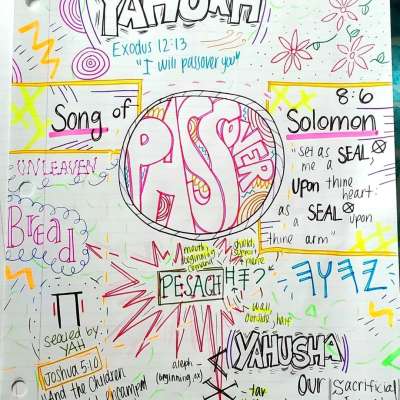 YAHUAH
Exodus 12:13
"I will passover you"
Song of
PASSOVER
8:6
Solomon
"set as
me a SEAL,
upon thine
heart
as a SEAL upon
thine arm"
UNLEAVEN
Bread
mouth,
beginning
command
shield,
name
PESACH
wall
outside, half
sealed by
YAH
Joshua 5:10
And the children
encamped
aleph
(beginning, ox)
(YAHUSHA)
tav
Our
Sacrificial